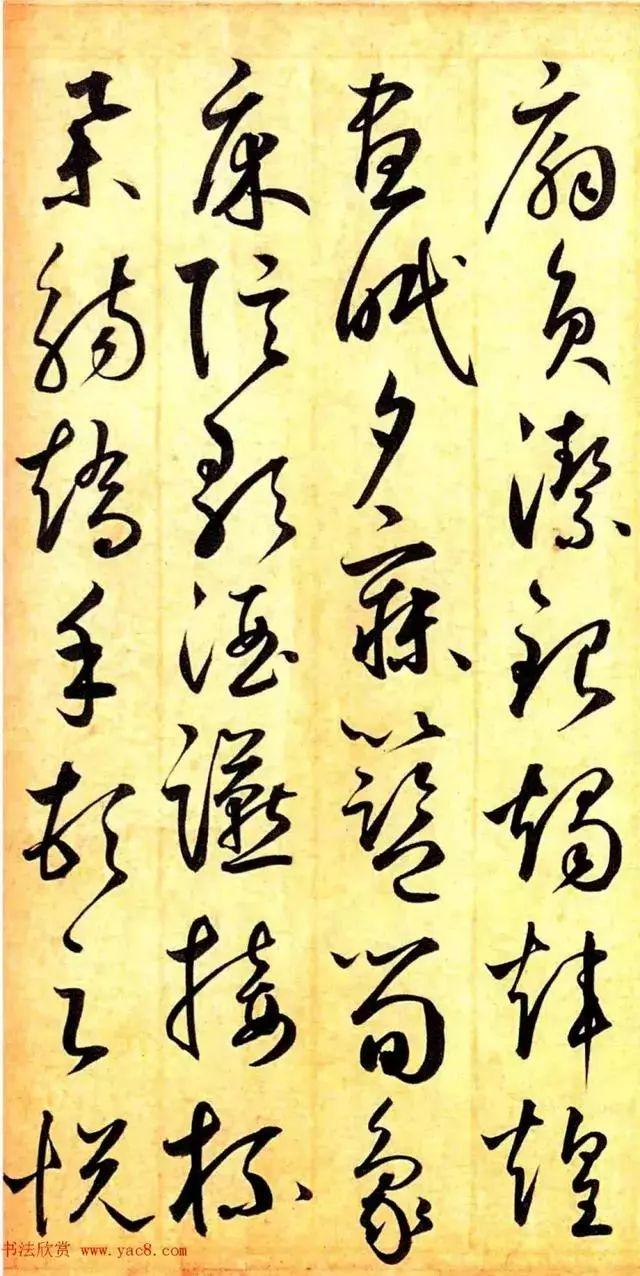 扇員潔銀燭煒煌
晝眠夕寐籃筍象
床弦歌酒讌接杯
舉觴矯手頓足悅
书法欣赏 www.yac8.com